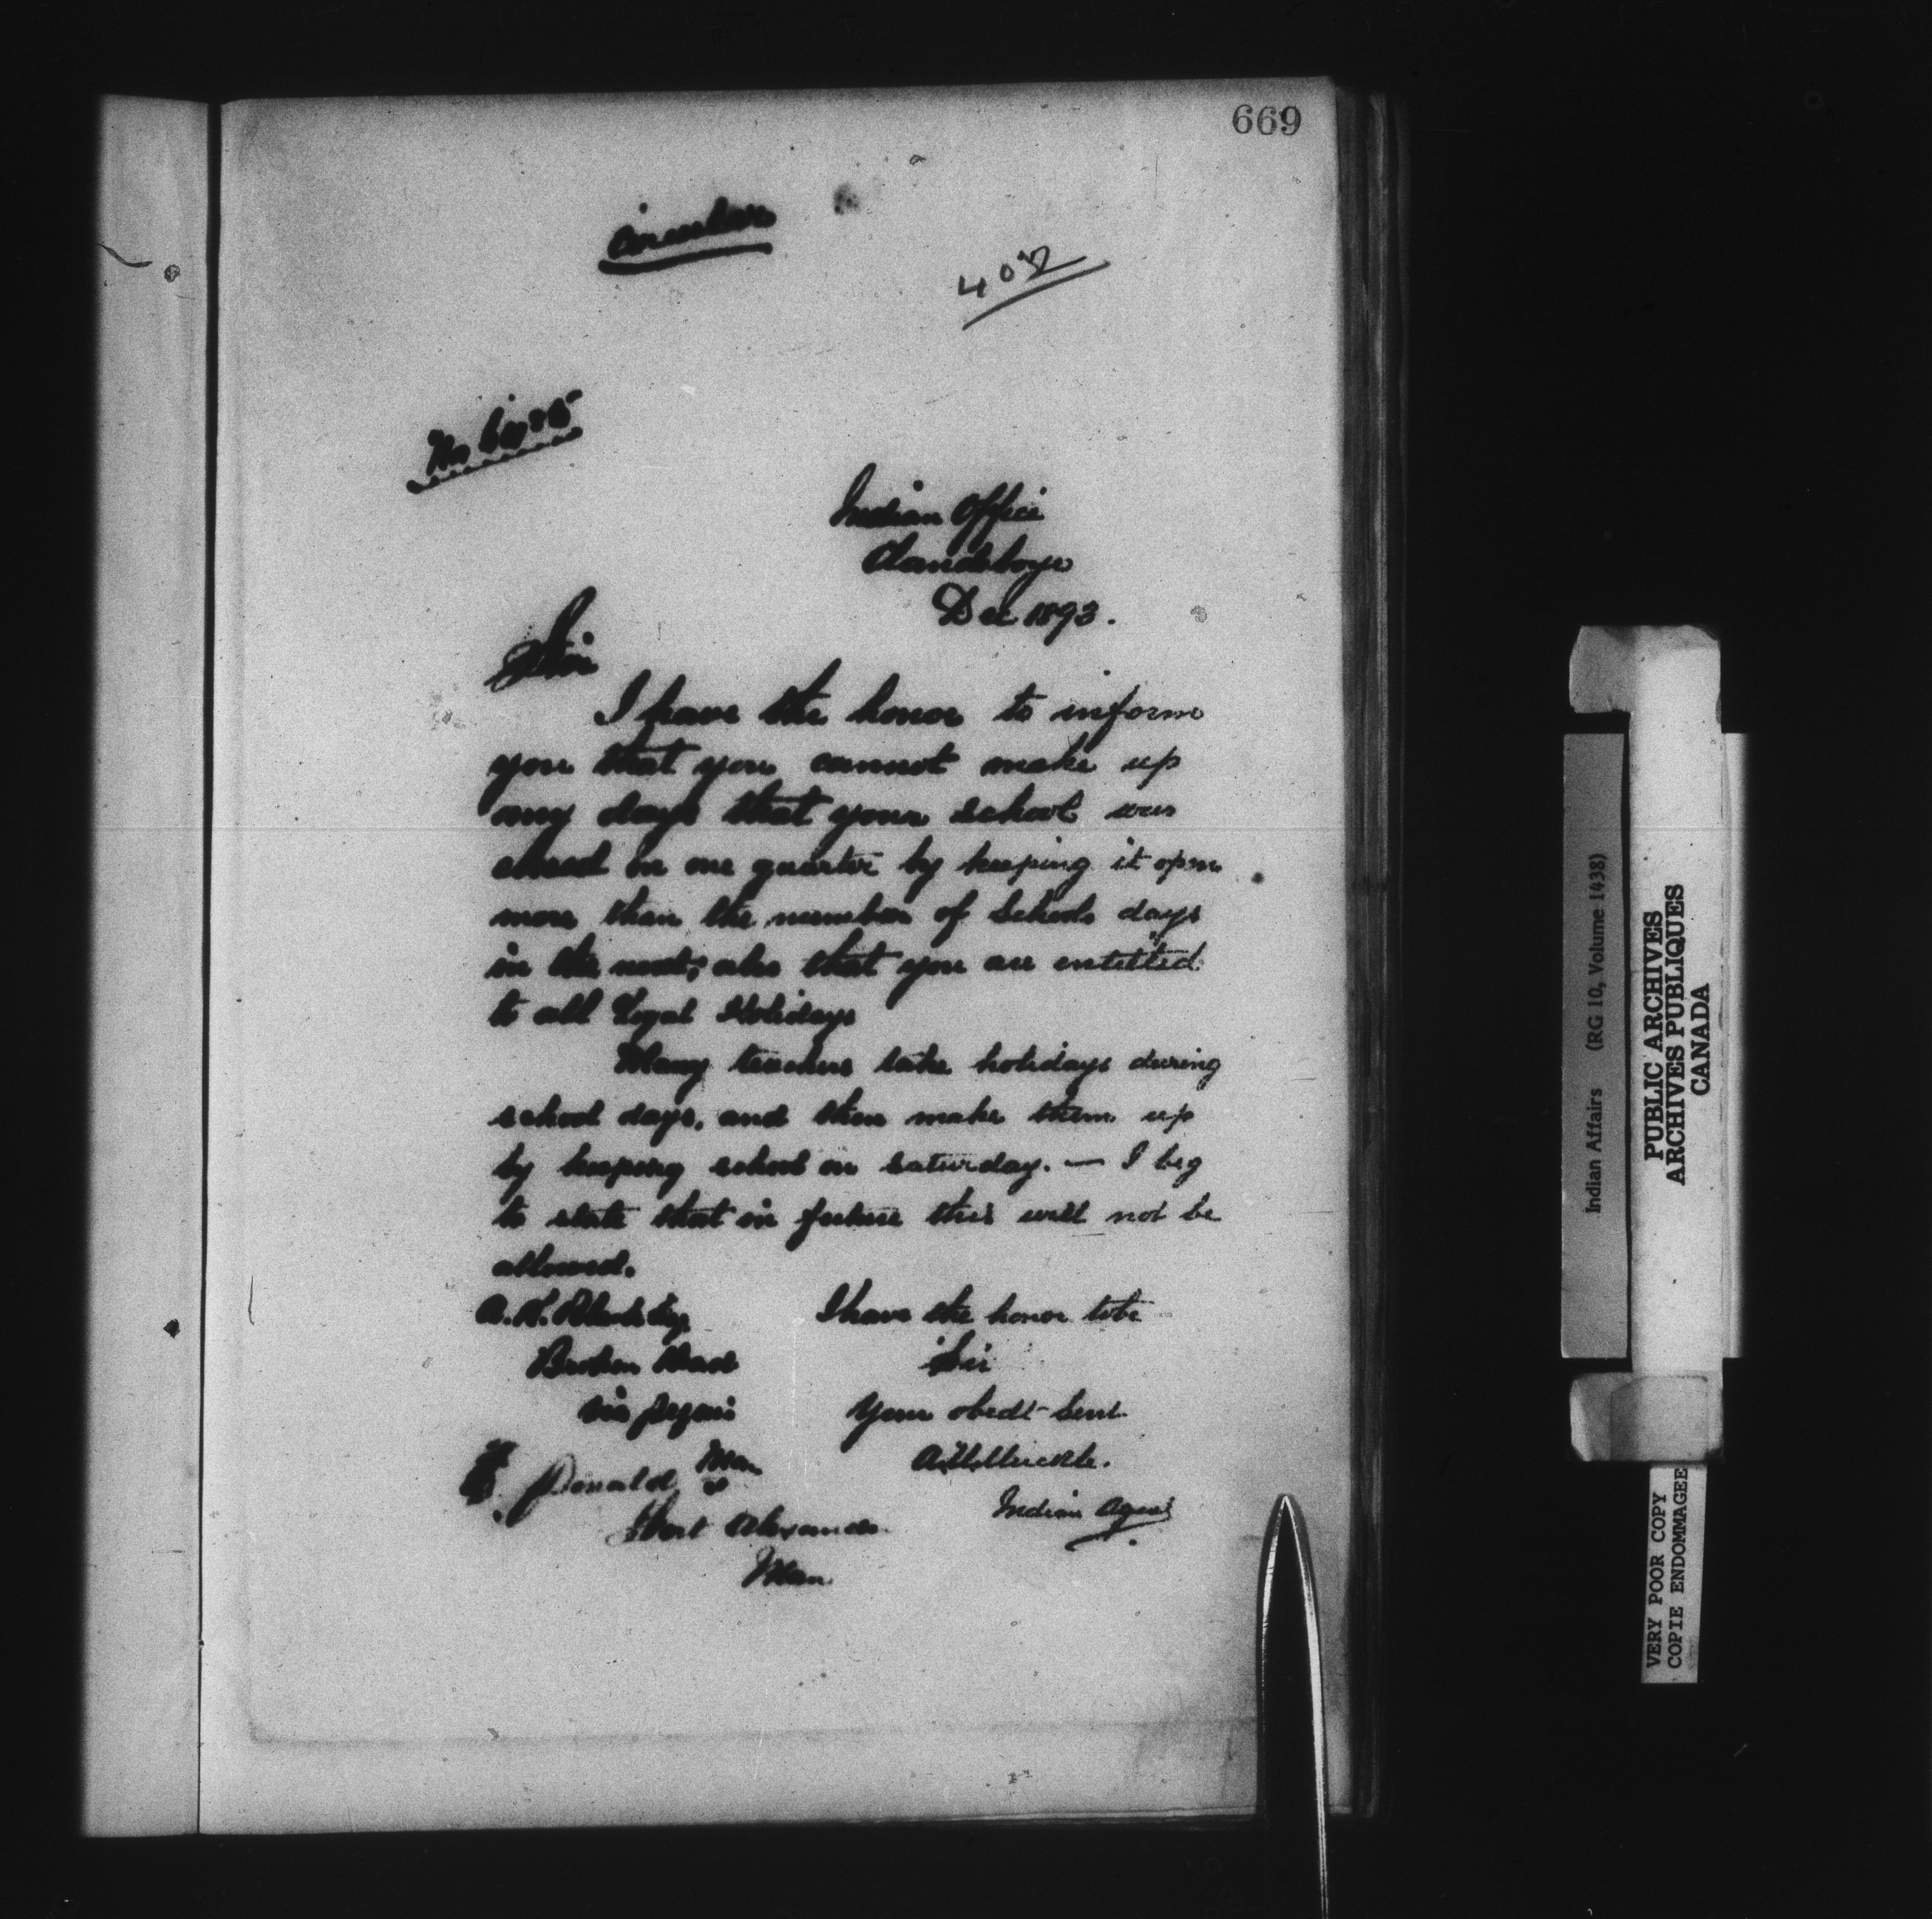 669
Circular
402
No
Indian Office
Clandeboye
Dec 1893.
Sir
I have the honor to inform
you that you cannot make up
any days that your school was
closed in one quarter by keeping it open
more than the number of Schools days
in the next, also that you are entitled
to all Legal Holidays
Many teachers take holidays during
school days, and then make them up
by keeping school on saturday. — I beg
to state that in future this will not be
allowed.
A.
I have the honor to be
Broken Head
Sir
via
Your obedt Servt
Man
A.M. Muckle.
Donald
Indian Agent
Fort Alexander
Man
Indian Affairs (RG 10, Volume 1438)
PUBLIC ARCHIVES
ARCHIVES PUBLIQUES
CANADA
VERY POOR COPY
COPIE ENDOMMAGEE